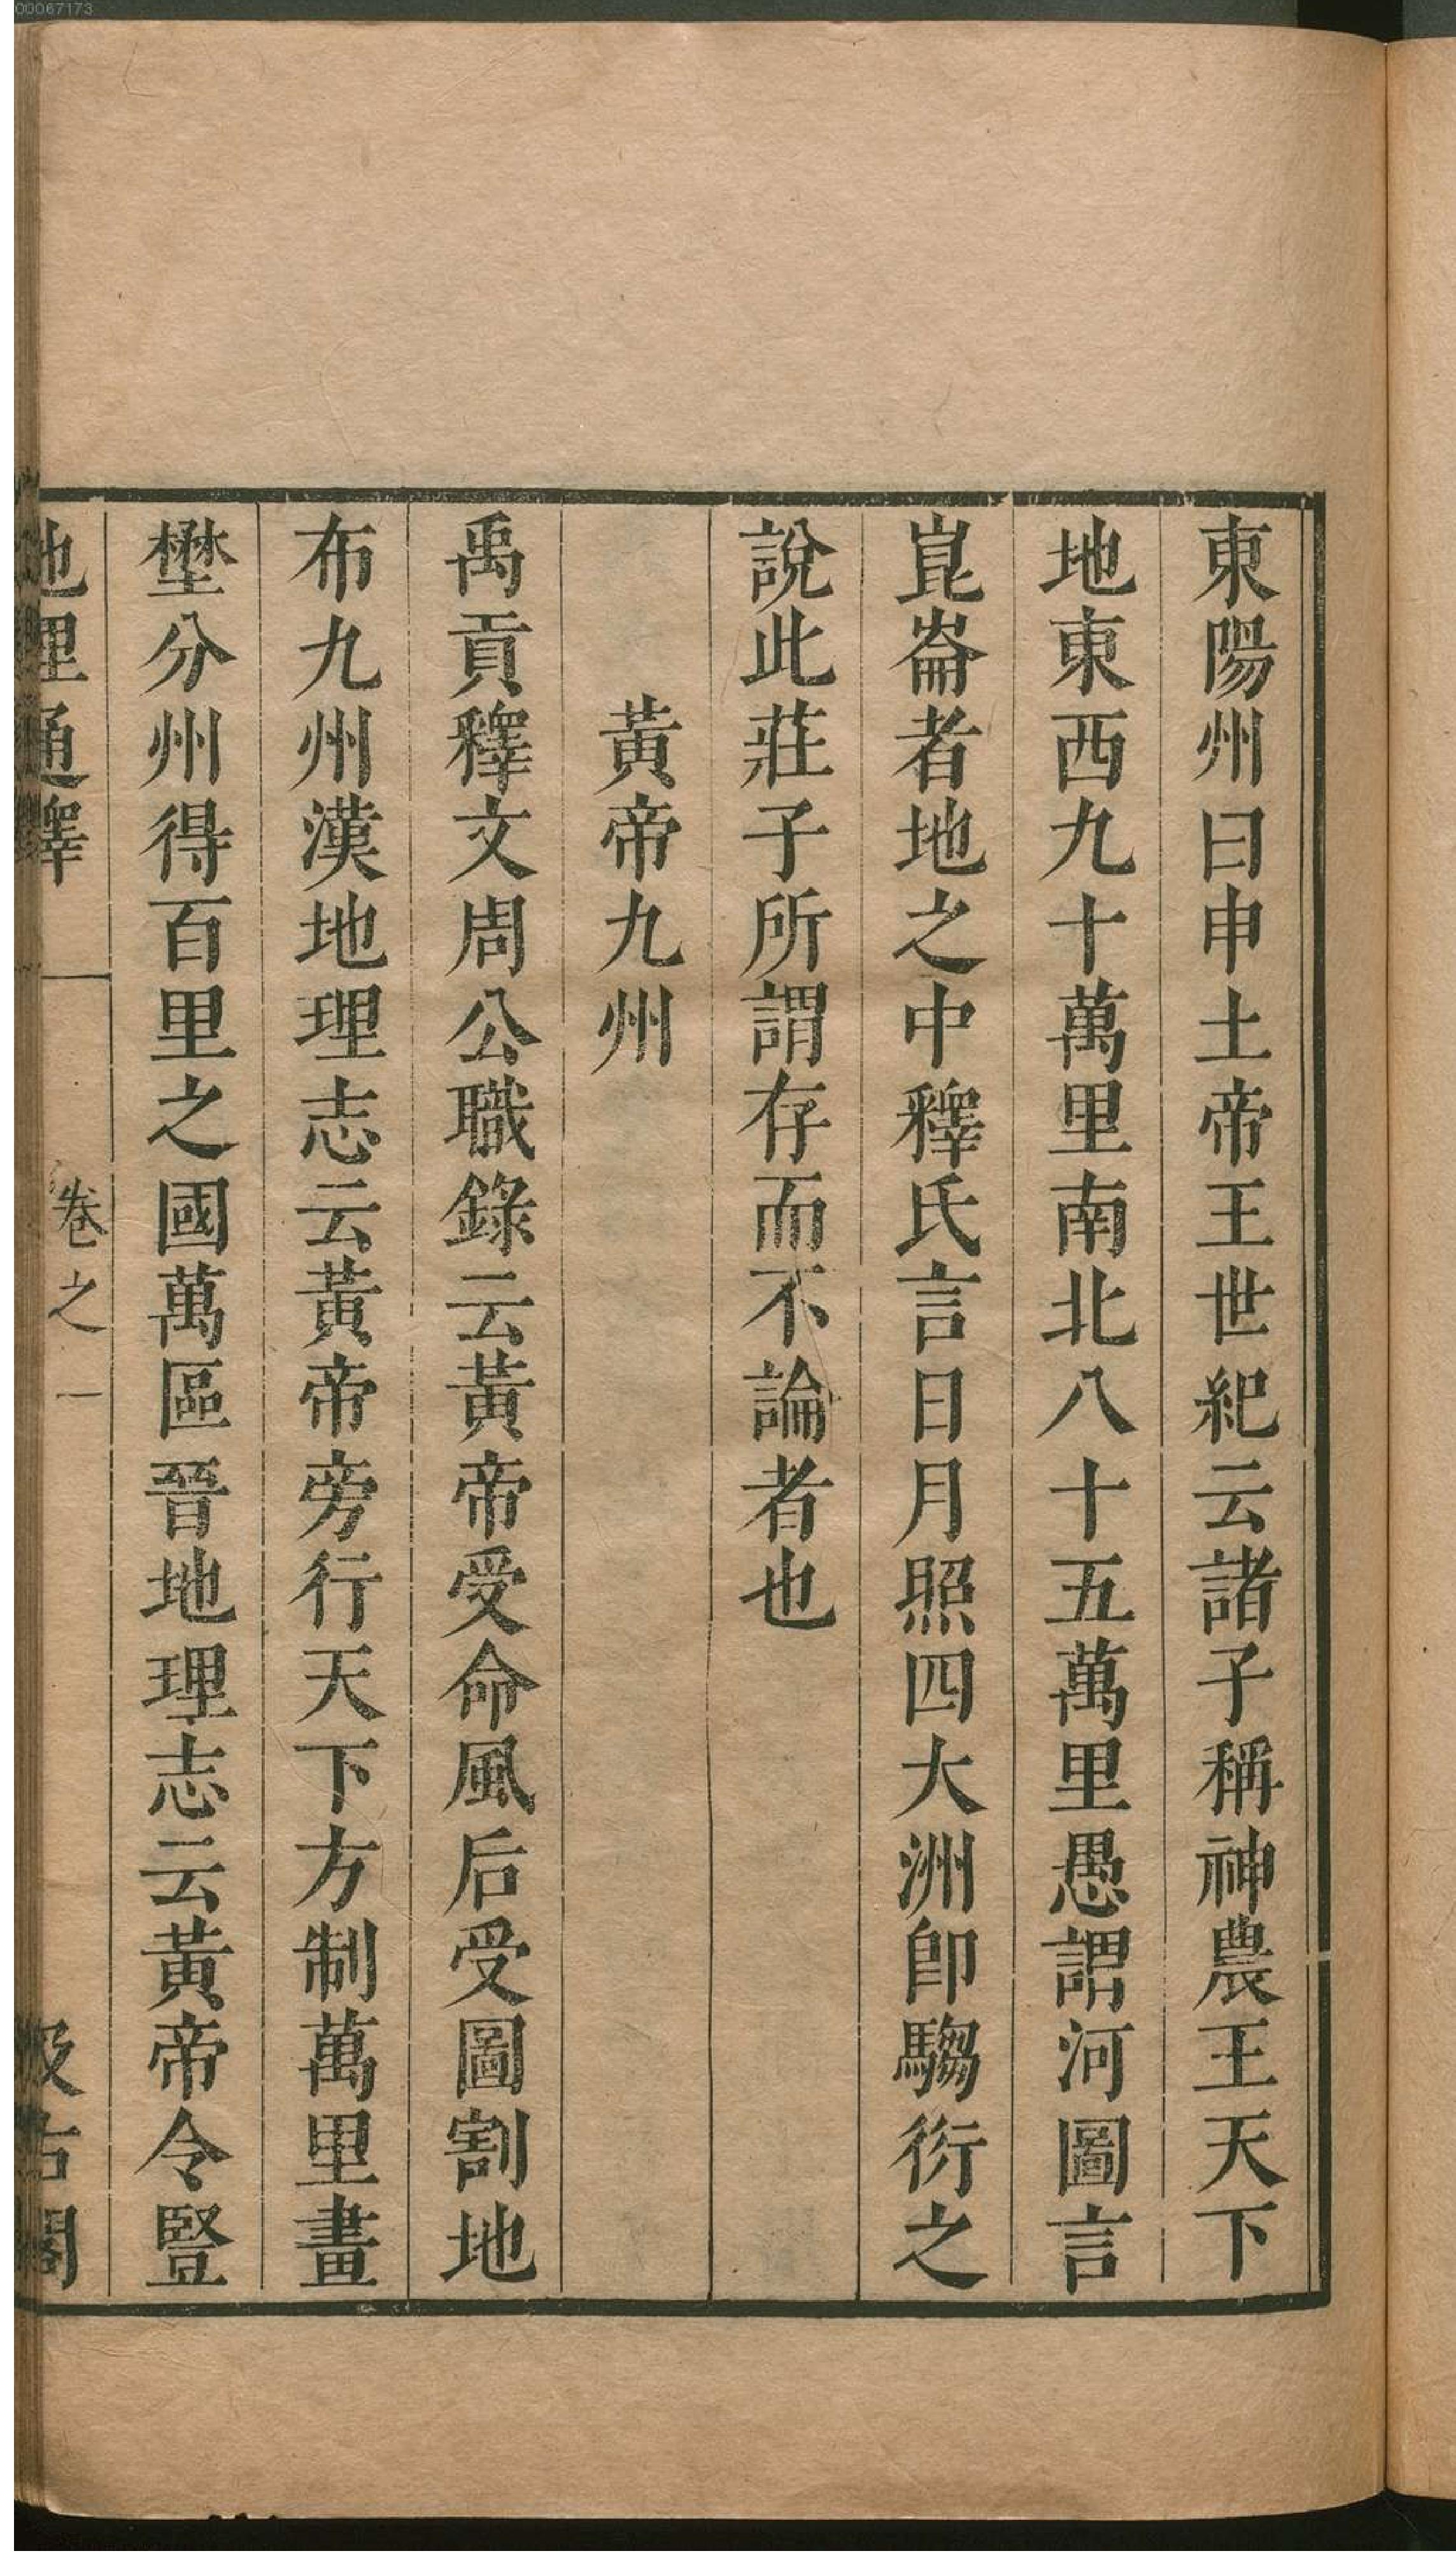 00067173
東陽州曰申土帝王世紀云諸子稱神農王天下
地東西九十萬里南北八十五萬里愚謂河圖言
崑崙者地之中釋氏言日月照四大洲卽騶衍之
說此莊子所謂存而不論者也
黃帝九州
禹貢釋文周公職錄云黃帝受命風后受圖割地
布九州漢地理志云黃帝旁行天下方制萬里畫
壄分州得百里之國萬區晉地理志云黃帝令豎
地理通釋 卷之一 汲古閣